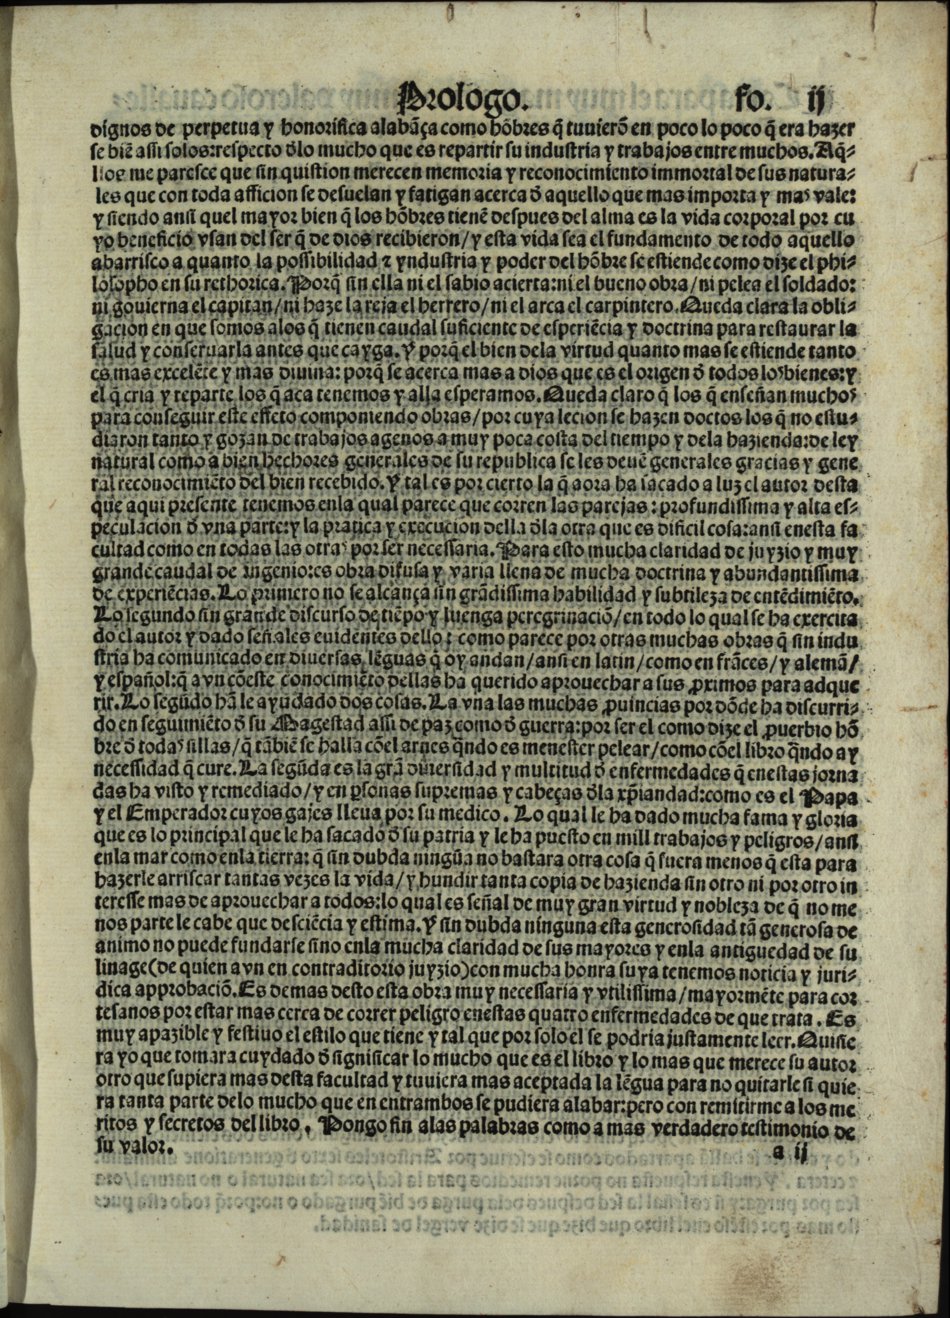 Prologo. fo. ij
dignos de perpetua y honorifica alabãça como hõbres q̃ tuuierõ en poco lo poco q̃ era hazer
se biẽ assi solos:respecto đlo mucho que es repartir su industria y trabajos entre muchos. Aq̃-
llos me paresce que sin quistion merecen memoria y reconocimiento immortal de sus natura-
les que con toda afficion se desuelan y fatigan acerca đ aquello que mas importa y maˢ vale:
y siendo ansi quel mayor bien q̃ los hõbres tienẽ despues del alma es la vida corporal por cu
yo beneficio vsan del ser q̃ de dios recibieron/y esta vida sea el fundamento de todo aquello
abarrisco a quanto la possibilidad ⁊ yndustria y poder del hõbre se estiende como dize el phi-
losopho en su rethorica. Porq̃ sin ella ni el sabio acierta:ni el bueno obra/ni pelea el soldado:
ni gouierna el capitan/ni haze la reja el herrero/ni el arca el carpintero. Queda clara la obli-
gacion en que somos alos q̃ tienen caudal suficiente de esperiẽcia y doctrina para restaurar la
salud y conseruarla antes que cayga. Y porq̃ el bien dela virtud quanto mas se estiende tanto
es mas excelẽte y mas diuina: porq̃ se acerca mas a dios que es el origen đ todos loˢ bienes:y
el q̃ cria y reparte los q̃ aca tenemos y alla esperamos. Queda claro q̃ los q̃ enseñan muchoˢ
para conseguir este effeto componiendo obras/por cuya lecion se hazen doctos los q̃ no estu-
diaron tanto y gozan de trabajos agenos a muy poca costa del tiempo y dela hazienda:de ley
natural como a bien hechores generales de su republica se les deuẽ generales gracias y gene
ral reconocimiẽto del bien recebido. Y tal es por cierto la q̃ aora ha sacado a luz el autor desta
que aqui presente tenemos enla qual parece que corren las parejas: profundissima y alta es-
peculacion đ vna parte:y la pratica y execucion della đla otra que es dificil cosa:ansi enesta fa
cultad como en todas las otraˢ por ser necessaria. Para esto mucha claridad de juyzio y muy
grande caudal de ingenio:es obra difusa y varia llena de mucha doctrina y abundantissima
de experiẽcias. Lo primero no se alcança sin grãdissima habilidad y subtileza de entẽdimiẽto.
Lo segundo sin grande discurso de tiẽpo y luenga peregrinaciõ/en todo lo qual se ha exercita
do el autor y dado señales euidentes dello: como parece por otras muchas obras q̃ sin indu
stria ha comunicado en diuersas lẽguas q̃ oy andan/ansi en latin/como en frãces/y alemã/
y español:q̃ avn cõeste conocimiẽto dellas ha querido aprouechar a sus ꝓximos para adque
rir. Lo segũdo hã le ayudado dos cosas. La vna las muchas ꝓuincias por dõde ha discurri-
do en seguimiẽto đ su Magestad assi de paz como đ guerra:por ser el como dize el ꝓuerbio hõ
bre đ todaˢ sillas/q̃ tãbiẽ se halla cõel arnes q̃ndo es menester pelear/como cõel libro q̃ndo ay
necessidad q̃ cure. La segũda es la grã diuersidad y multitud đ enfermedades q̃ enestas jorna
das ha visto y remediado/y en ꝑsonas supremas y cabeças đla xp̃iandad:como es el Papa
y el Emperador cuyos gajes lleua por su medico. Lo qual le ha dado mucha fama y gloria
que es lo principal que le ha sacado đ su patria y le ha puesto en mill trabajos y peligros/ansi
enla mar como enla tierra: q̃ sin dubda ningũa no bastara otra cosa q̃ fuera menos q̃ esta para
hazerle arriscar tantas vezes la vida/y hundir tanta copia de hazienda sin otro ni por otro in
teresse mas de aprouechar a todos:lo qual es señal de muy gran virtud y nobleza de q̃ no me
nos parte le cabe que desciẽcia y estima. Y sin dubda ninguna esta generosidad tã generosa de
animo no puede fundarse sino enla mucha claridad de sus mayores y enla antiguedad de su
linage(de quien avn en contraditorio juyzio)con mucha honra suya tenemos noticia y juri-
dica approbaciõ. Es demas desto esta obra muy necessaria y vtilissima/mayormẽte para cor
tesanos por estar mas cerca de correr peligro enestas quatro enfermedades de que trata. Es
muy apazible y festiuo el estilo que tiene y tal que por solo el se podria justamente leer. Quisie
ra yo que tomara cuydado đ significar lo mucho que es el libro y lo mas que merece su autor
otro que supiera mas desta facultad y tuuiera mas aceptada la lẽgua para no quitarle si quie
ra tanta parte delo mucho que en entrambos se pudiera alabar:pero con remitirme a los me
ritos y secretos del libro. Pongo fin alas palabras como a mas verdadero testimonio de
su valor.
a ij